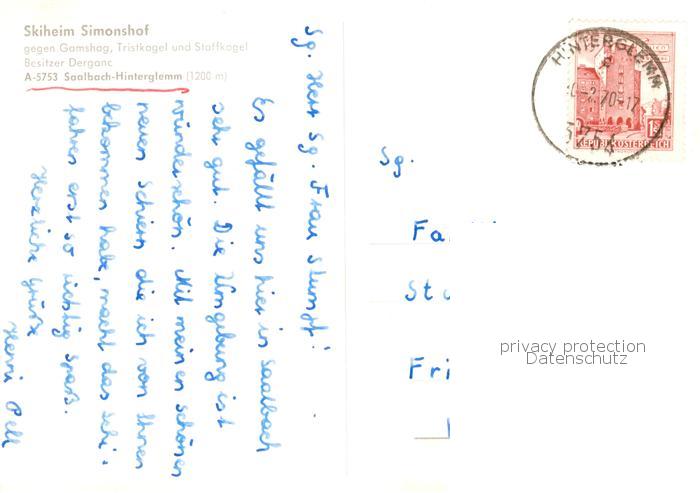 Skiheim Simonshof
gegen Gamshag, Tristkogel und Staffkogel
Besitzer Derganc
A-5753 Saalbach-Hinterglemm (1200 m)
Sg. Herr Sg. Frau Stumpf!
Es gefällt uns hier in Saalbach
sehr gut. Die Umgebung ist
wunderschön. Mit meinen schönen
neuen Schiern die ich von Ihnen
bekommen habe, macht das Schi-
fahren erst so richtig spaß.
Herzliche Grüße
Henri Pell
HINTERGLEMM
5754
REPUBLIK ÖSTERREICH
Sg.
Fa
St
Fri
privacy protection
Datenschutz